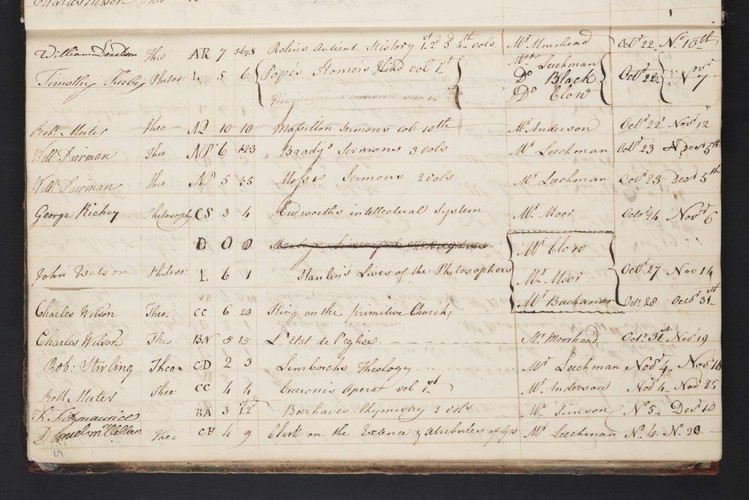 Charles Wilson
William Theo AR 7 5&6&8 Rolin's Antient History 1st 2d 3 4th vols. Mr. Muirhead Octr 22. Nr. 10th
Timothy Philos. L 5 6 Pope's Homer's Iliad vol 1st Mr. Leechman Octr 22 Nr 7
Do Black
Do Clow
Robt. Muter Theo. 10 10 Masillon Sermons vol 10th Mr. Anderson Octr 22 Novr 12
Will: Theo. NP 6 Brady's Sermons 3 vols Mr. Leechman Octr 23
Will: Theo. NP 5 Moss's Sermons 2 vols Mr. Leechman Octr 23 Decr 5th
George Richey Philosophy CS 3 4 Cudworths intellectual System Mr. Moor Octr 24 Novr 6
D 0 0 Mr. Clow
John Watson Philos. L 6 1 Stanley's Lives of the Philosophers Mr. Moor Octr 27 Nov 14
Mr. Buchanan
Charles Wilson Theo. CC 6 23 King on the primitive Church; Oct. 28 Octr 31st
Charles Wilson Theo BN 5 15 L'Etat de l'eglise Mr. Moorhead Octr. 31st Nov. 19
Rob: Stirling Theo. CD 2 3 Limborchs Theology Mr. Leechman Novr 4. Novr 18
Robt. Muter Theo: CC 4 4 Ciceronis Opera vol 1st Mr. Anderson Nov. 4. Nov. 25
T. Fitzmaurice BA 3 1,2 Boerhaves Chymistry 2 vols Mr. Simson N. 5. Decr 10
McClellan Theo. CF 4 9 Clark on the Existence & Attributes of God Mr. Leechman N. 6. N. 20